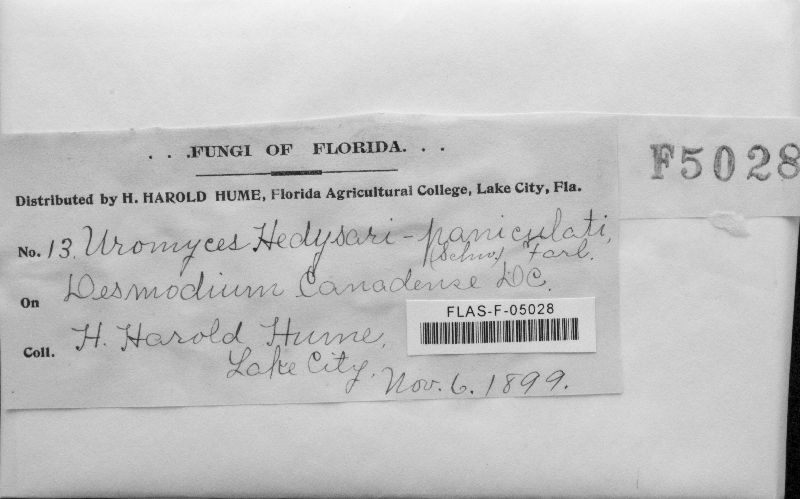 . . .FUNGI OF FLORIDA. . .
F5028
Distributed by H. HAROLD HUME, Florida Agricultural College, Lake City, Fla.
No. 13. Uromyces Hedysari-paniculati,
(Schw) Farl.
On Desmodium Canadense DC.
FLAS-F-05028
Coll. H. Harold Hume,
Lake City, Nov. 6. 1899.